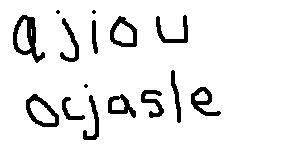 ajiou
ocjasle